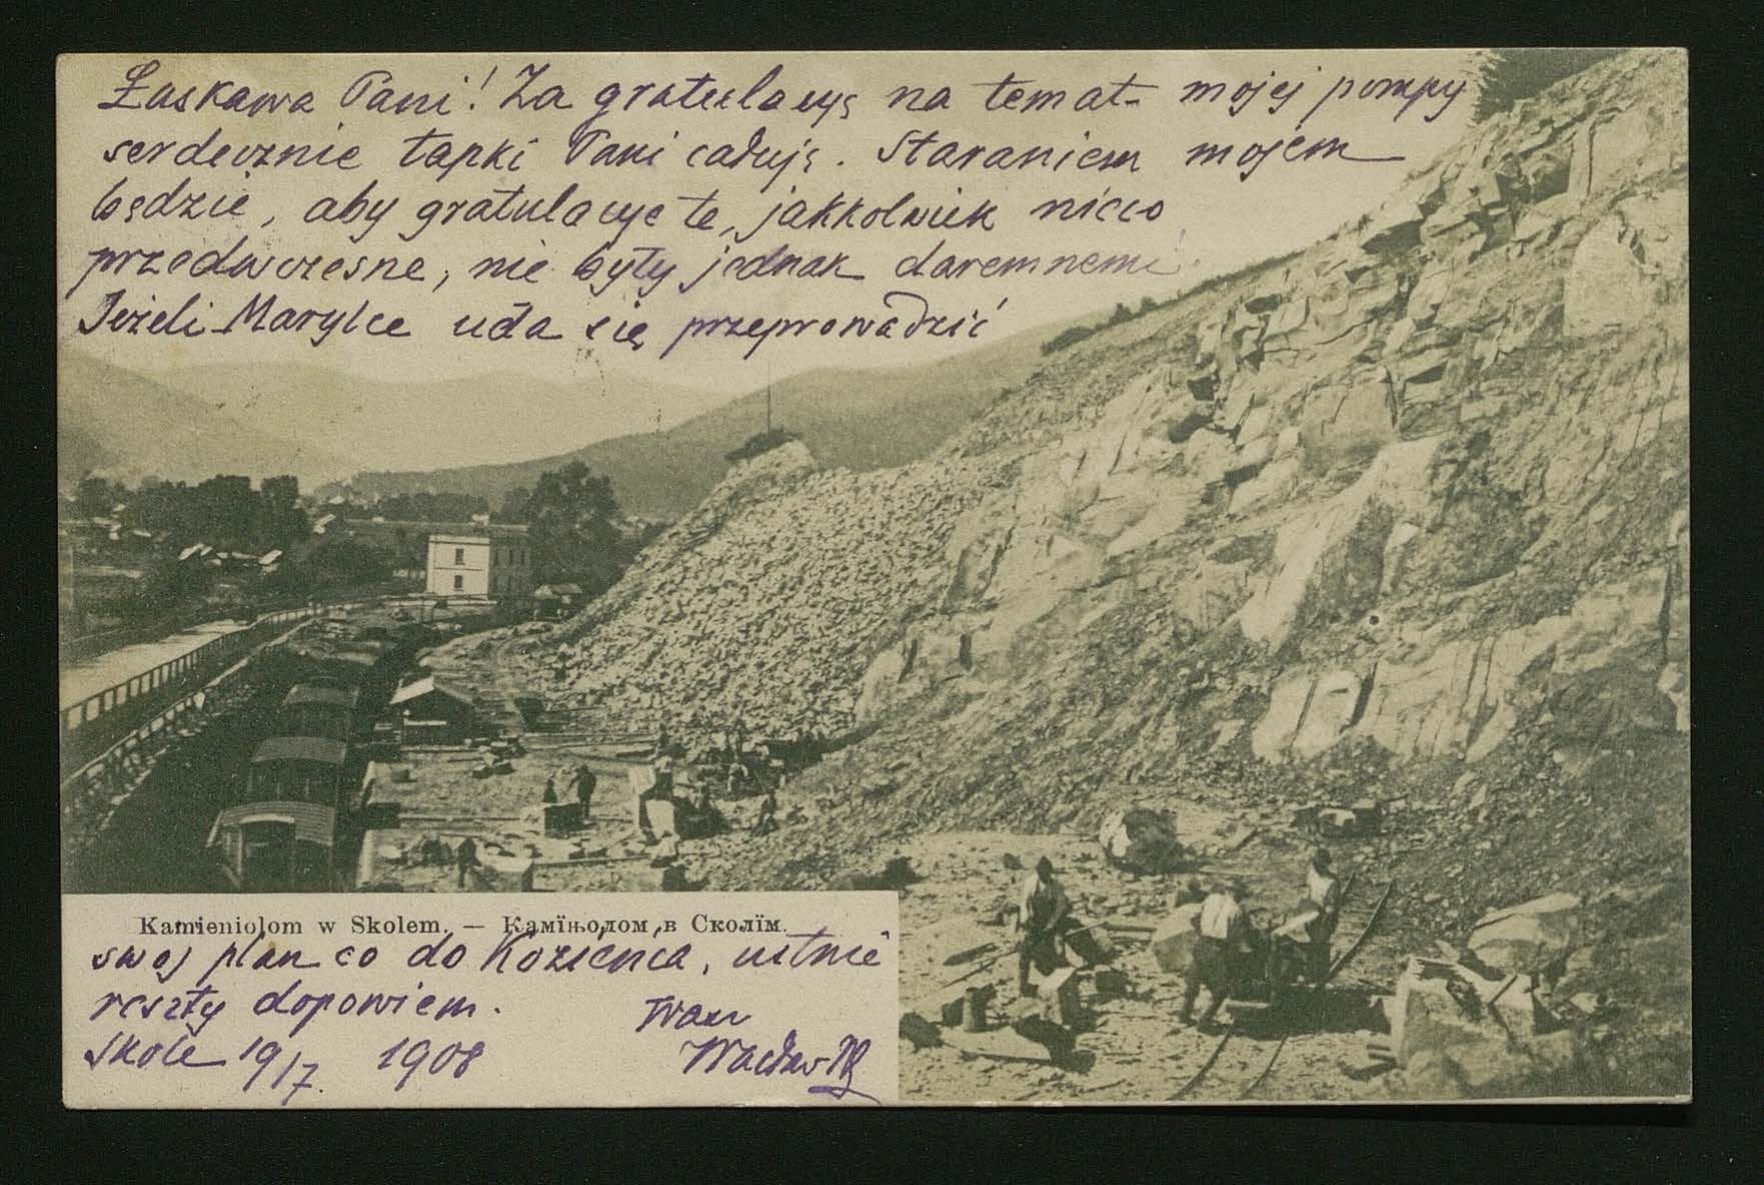 Łaskawa Pani! Za gratulacyę na temat mojej pompy
serdecznie łapki Pani całuję. Staraniem mojem
będzie, aby gratulacye te, jakkolwiek nieco
przedwczesne, nie były jednak daremnemi.
Jeżeli Marylce uda się przeprowadzić
Kamieniolom w Skolem. — Камїньолом в Сколїм.
swój plan co do Kozieńca, ustnie
reszty dopowiem.
Skole 19/7. 1908
Wacław